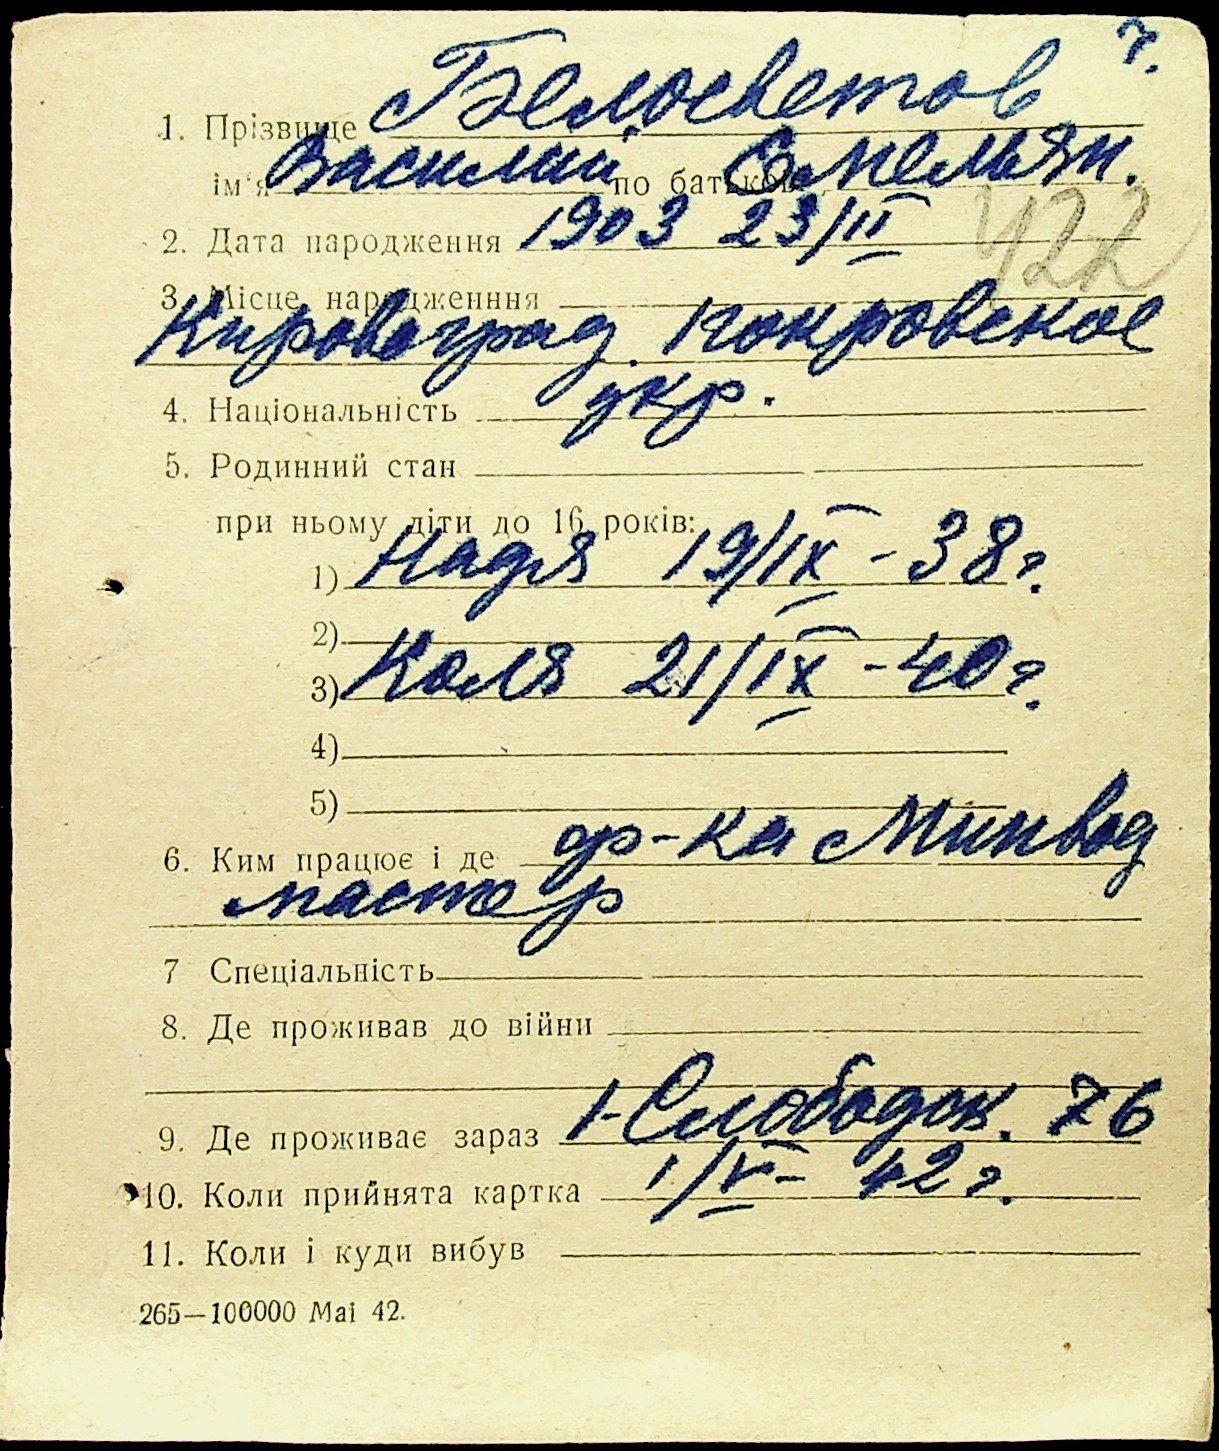 7.
1. Прізвище Белосветов
ім'я Василий по батькові Омельян.
2. Дата народження 1903 23/II
422
3. Місце народженння
Кировоград. Покровское
4. Національність укр.
5. Родинний стан
при ньому діти до 16 років:
1) Надя 19/IX - 38 г.
2)
3) Коля 21/IX - 40 г.
4)
5)
6. Ким працює і де ф-ка Минвод
мастер
7 Спеціальність
8. Де проживав до війни
9. Де проживає зараз 1-Слободок. 76
10. Коли прийнята картка 1/V - 42 г.
11. Коли і куди вибув
265—100000 Маі 42.